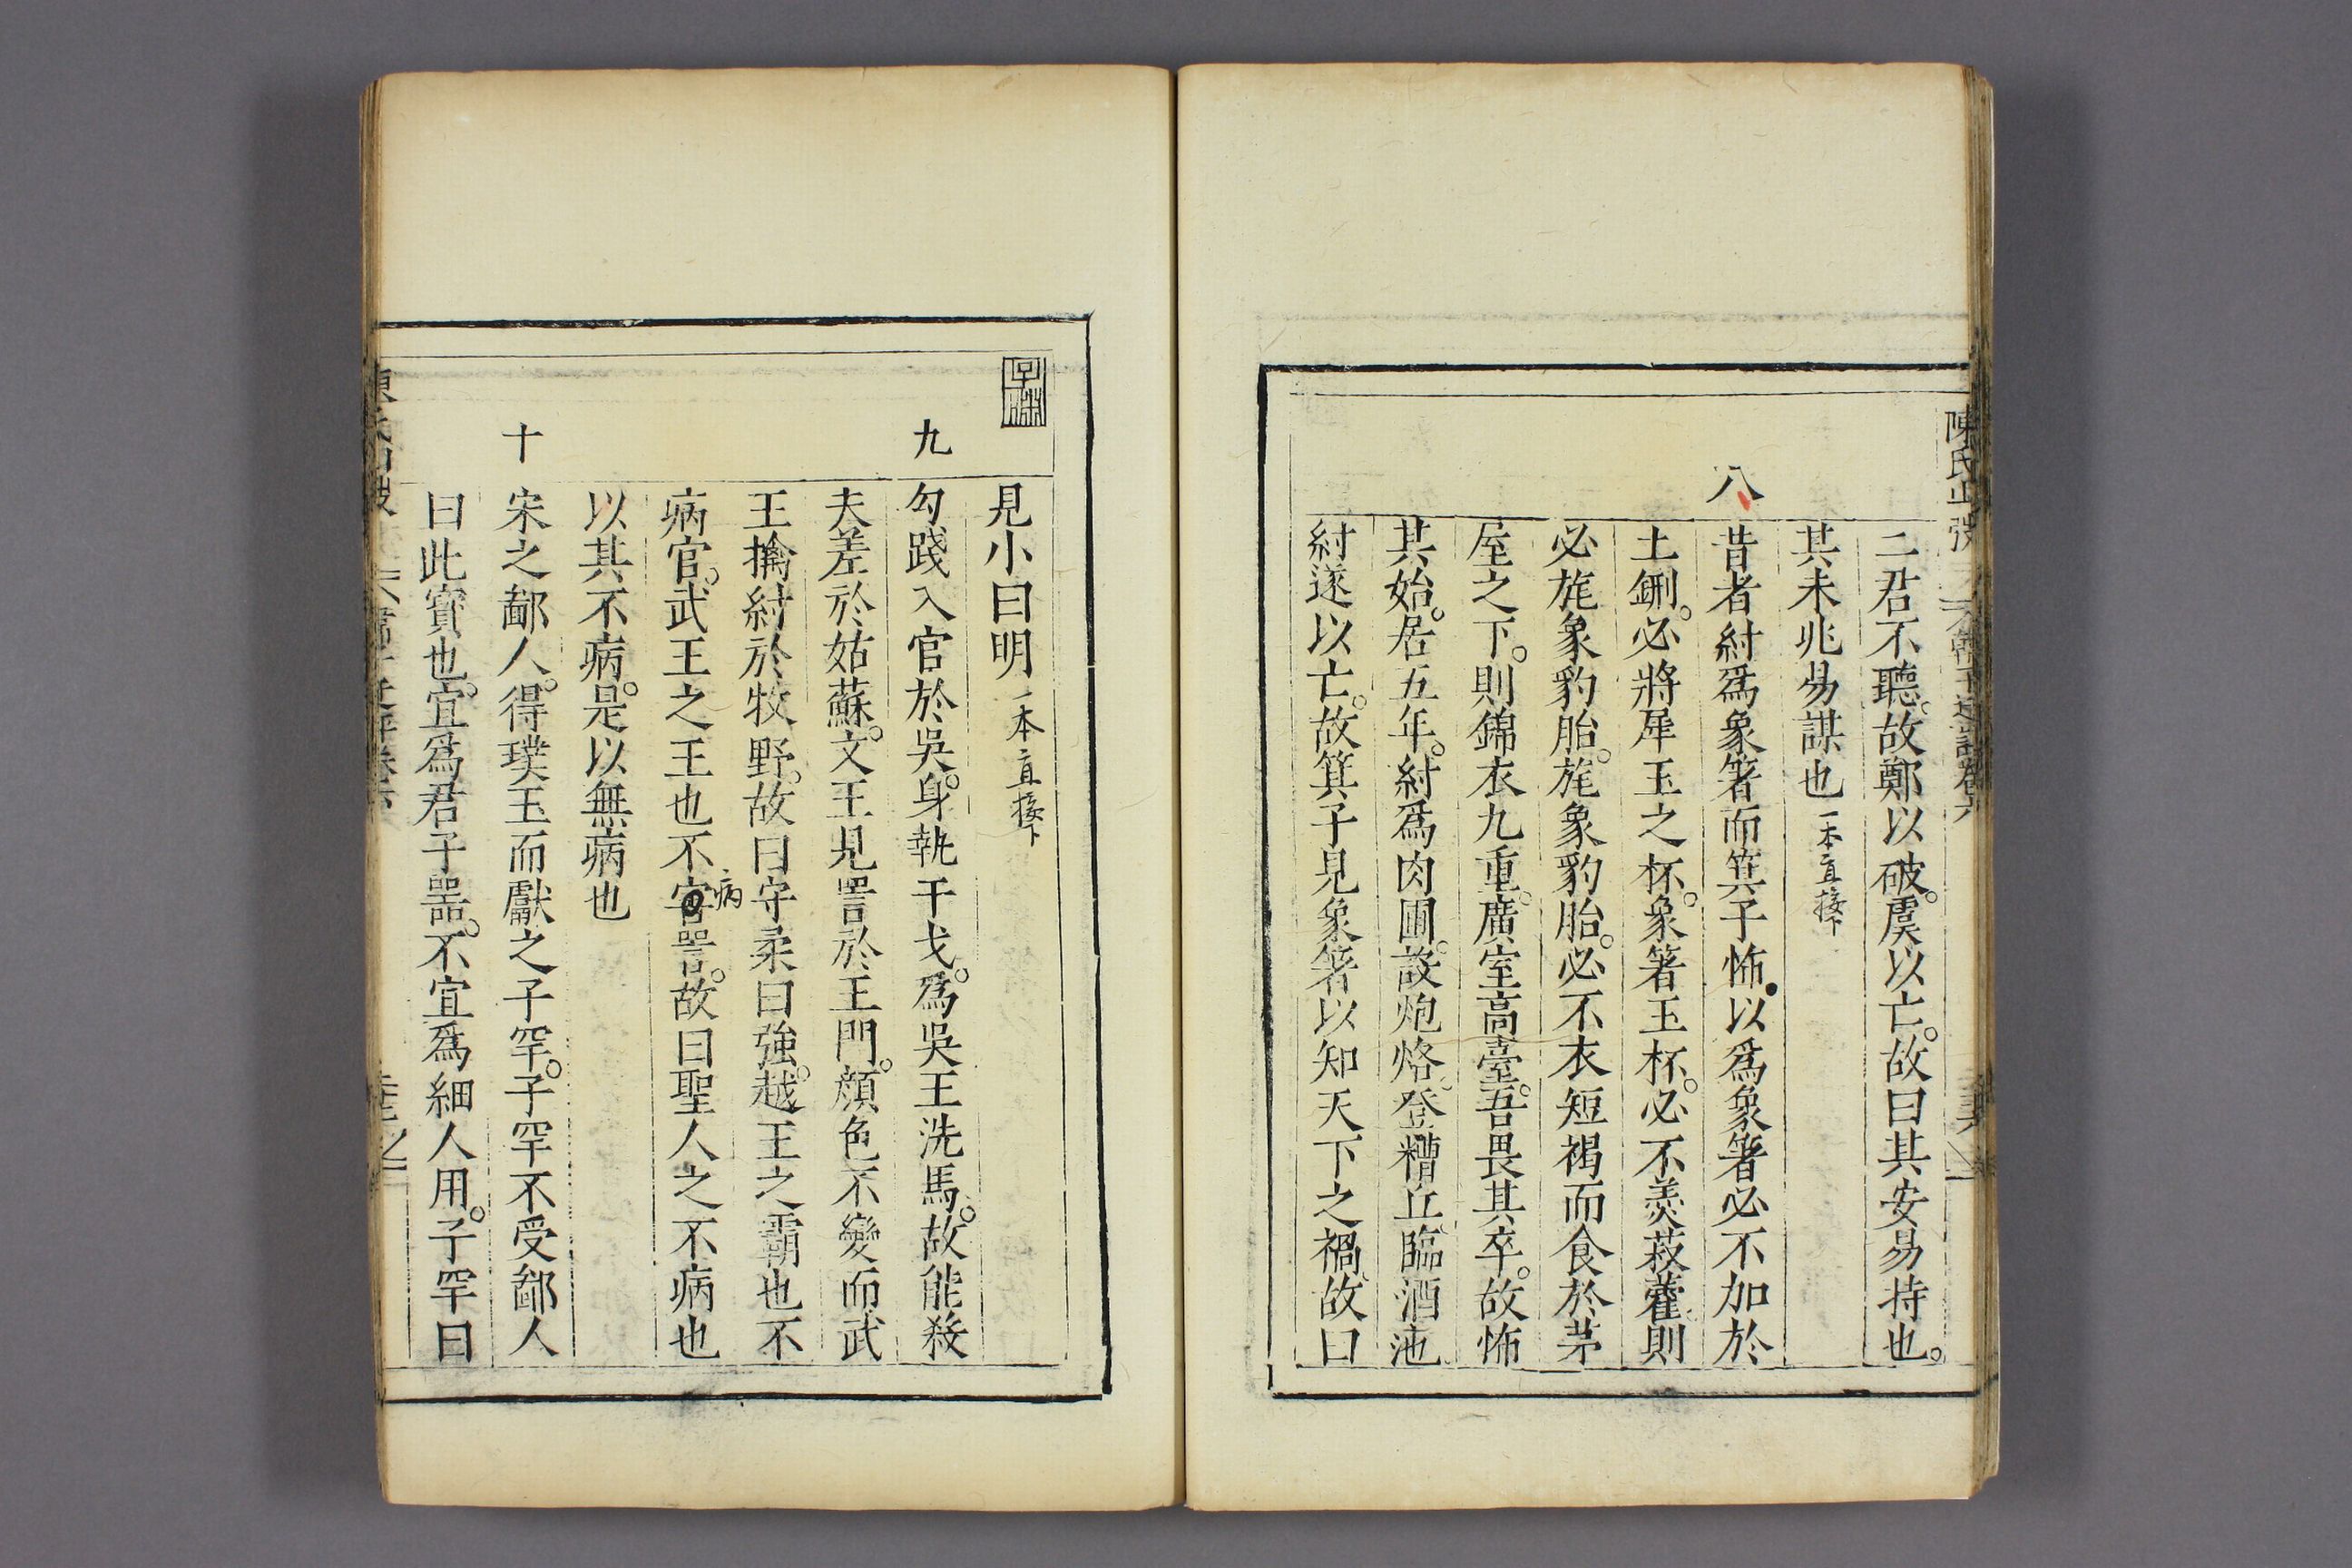 二君不聽故鄭以破虞以亡故曰其安易持也
其未兆易謀也一本直接下
八
昔者紂爲象箸而箕子怖以爲象箸必不加於
土鉶必將犀玉之杯象箸玉杯必不羹菽藿則
必旄象豹胎旄象豹胎必不衣短褐而食於茅
屋之下則錦衣九重廣室高臺吾畏其卒故怖
其始居五年紂爲肉圃設炮烙登糟丘臨酒池
紂遂以亡故箕子見象箸以知天下之禍故曰
見小曰明一本直接下
九
勾踐入官於吳身執干戈爲吳王洗馬故能殺
夫差於姑蘇文王見詈於王門顏色不變而武
王擒紂於牧野故曰守柔曰強越王之霸也不
病官武王之王也不
病
詈故曰聖人之不病也
以其不病是以無病也
十
宋之鄙人得璞玉而獻之子罕子罕不受鄙人
曰此寶也宜爲君子器不宜爲細人用子罕曰